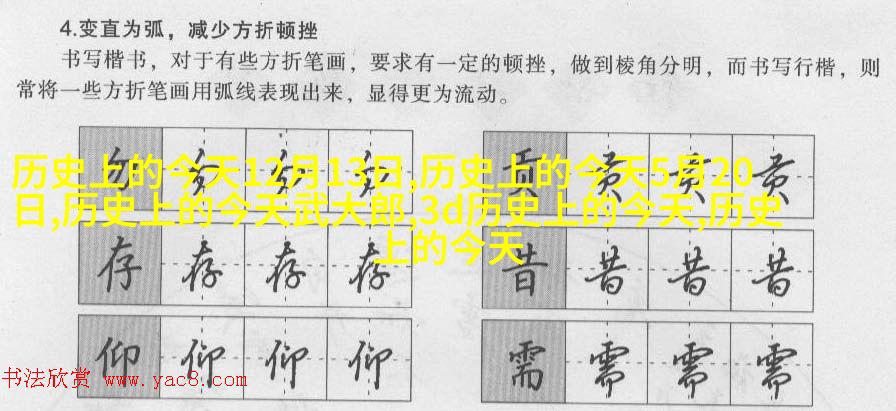 4.变直为弧，减少方折顿挫
书写楷书，对于有些方折笔画，要求有一定的顿挫，做到棱角分明，而书写行楷，则
常将一些方折笔画用弧线表现出来，显得更为流动。
历史上的今天12月13日,历史上的今天5月20
日,历史上的今天武大郎,3d历史上的今天,历史
上的今天
贡 贡 贡 贡
存 存 存 存
昔 昔 昔 昔
仰 仰 仰 仰
需 需 需 需
书法欣赏 www.yac8.com